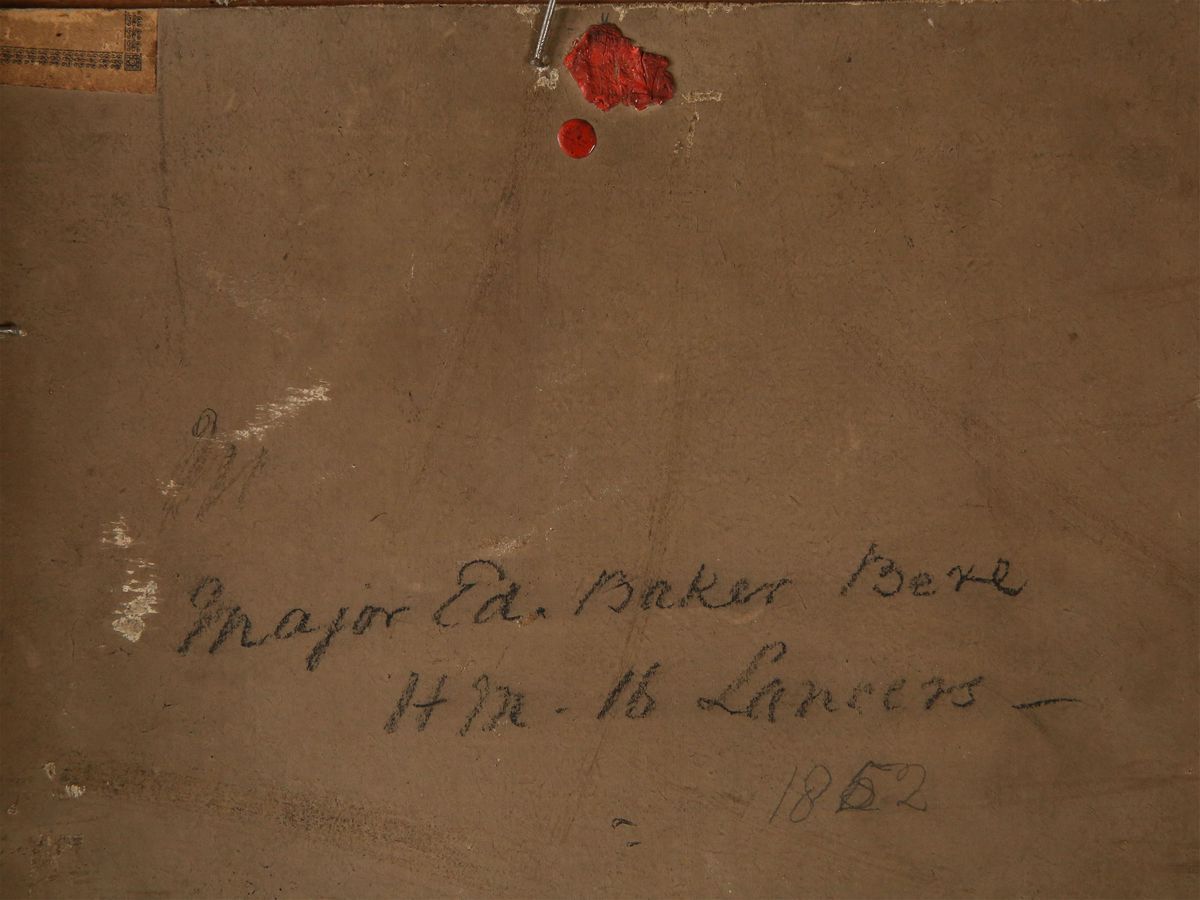 M
Major Ed. Baker Bere
H M - 16 Lancers —
1852